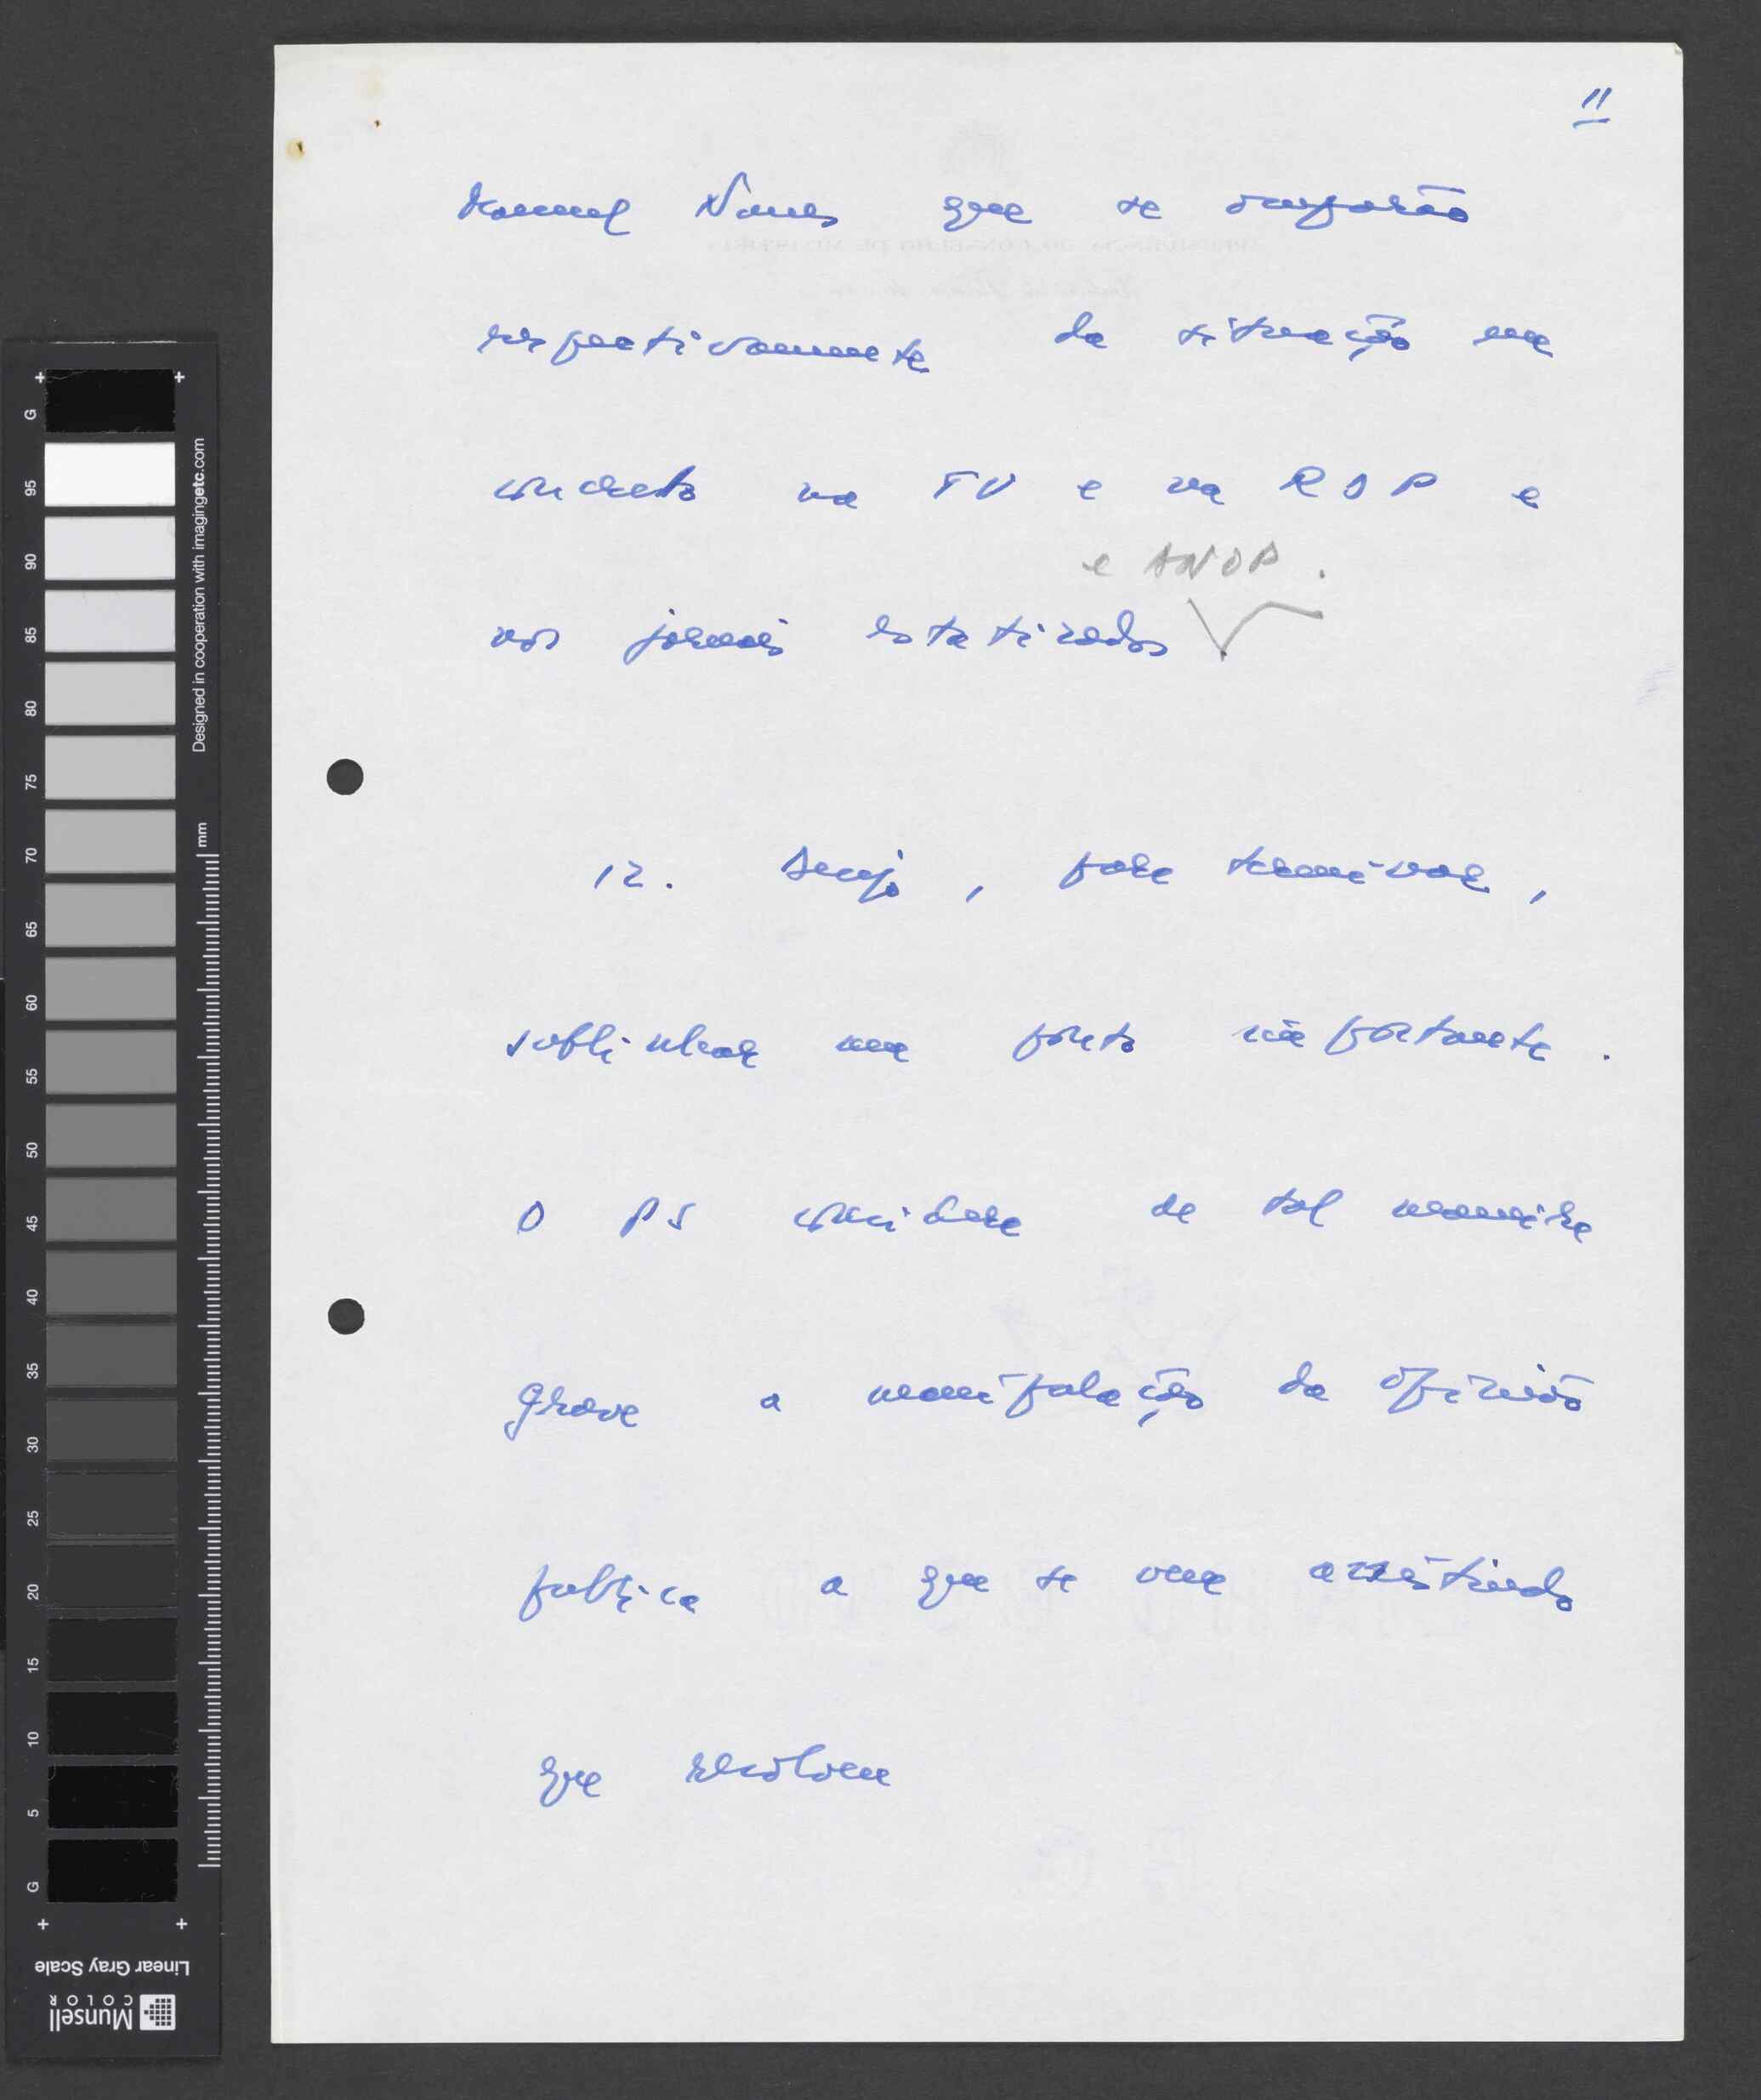 11
Manuel Nunes que se ocuparão
respectivamente da situação em
concreto na TV e na RDP e
e ANOP.
nos jornais estatizados
12. Desejo, para terminar,
sublinhar um ponto importante.
O PS considera de tal maneira
grave a manipulação da opinião
pública a que se vem assistindo
que resolveu
G 95 90 85 80 75 70 65 60 55 50 45 40 35 30 25 20 15 10 5 G
Designed in cooperation with imagingetc.com
mm
Linear Gray Scale
Munsell
COLOR